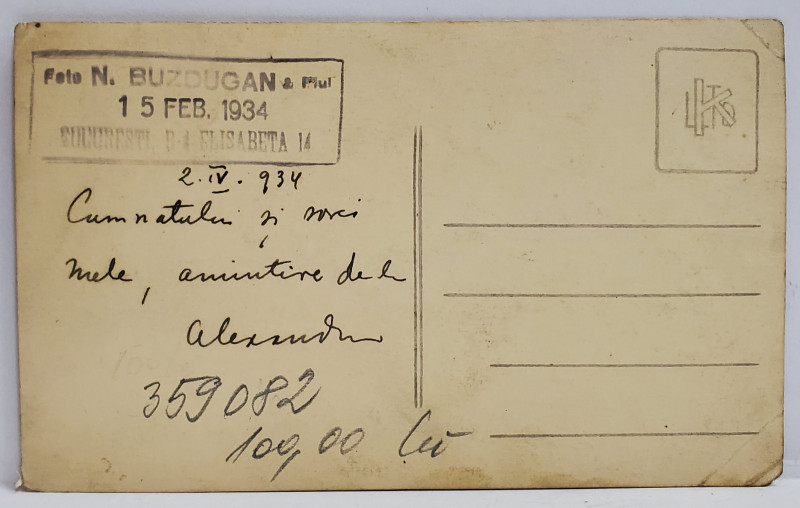 Foto N. BUZDUGAN & Fiul
15 FEB. 1934
BUCUREȘTI, B-d ELISABETA 14
2.IV.934
Cumnatului și sorei
mele, amintire de la
Alexandru
359082
100,00 Lei